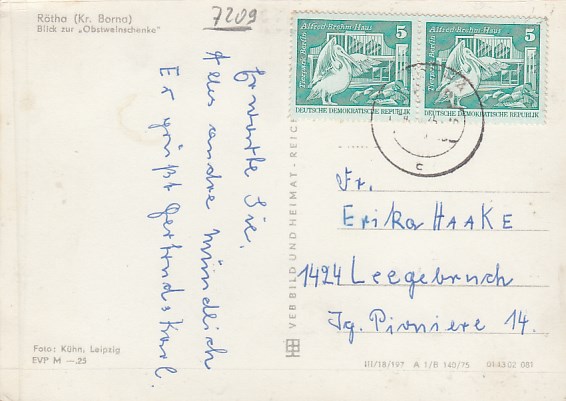 Rötha (Kr. Borna)
Blick zur „Obstweinschenke"
7209
Erwarte Sie.
Alles andre mündlich
Es grüßt Gertrud & Karl.
Foto: Kühn, Leipzig
EVP M —.25
VEB BILD UND HEIMAT · REICH
Alfred-Brehm-Haus 5
Tierpark Berlin
DEUTSCHE DEMOKRATISCHE REPUBLIK
Alfred-Brehm-Haus 5
Tierpark Berlin
DEUTSCHE DEMOKRATISCHE REPUBLIK
c
Fr.
Erika HAAKE
1424 Leegebruch
Jg. Pioniere 14.
III/18/197 A 1/B 140/75 01 43 02 081